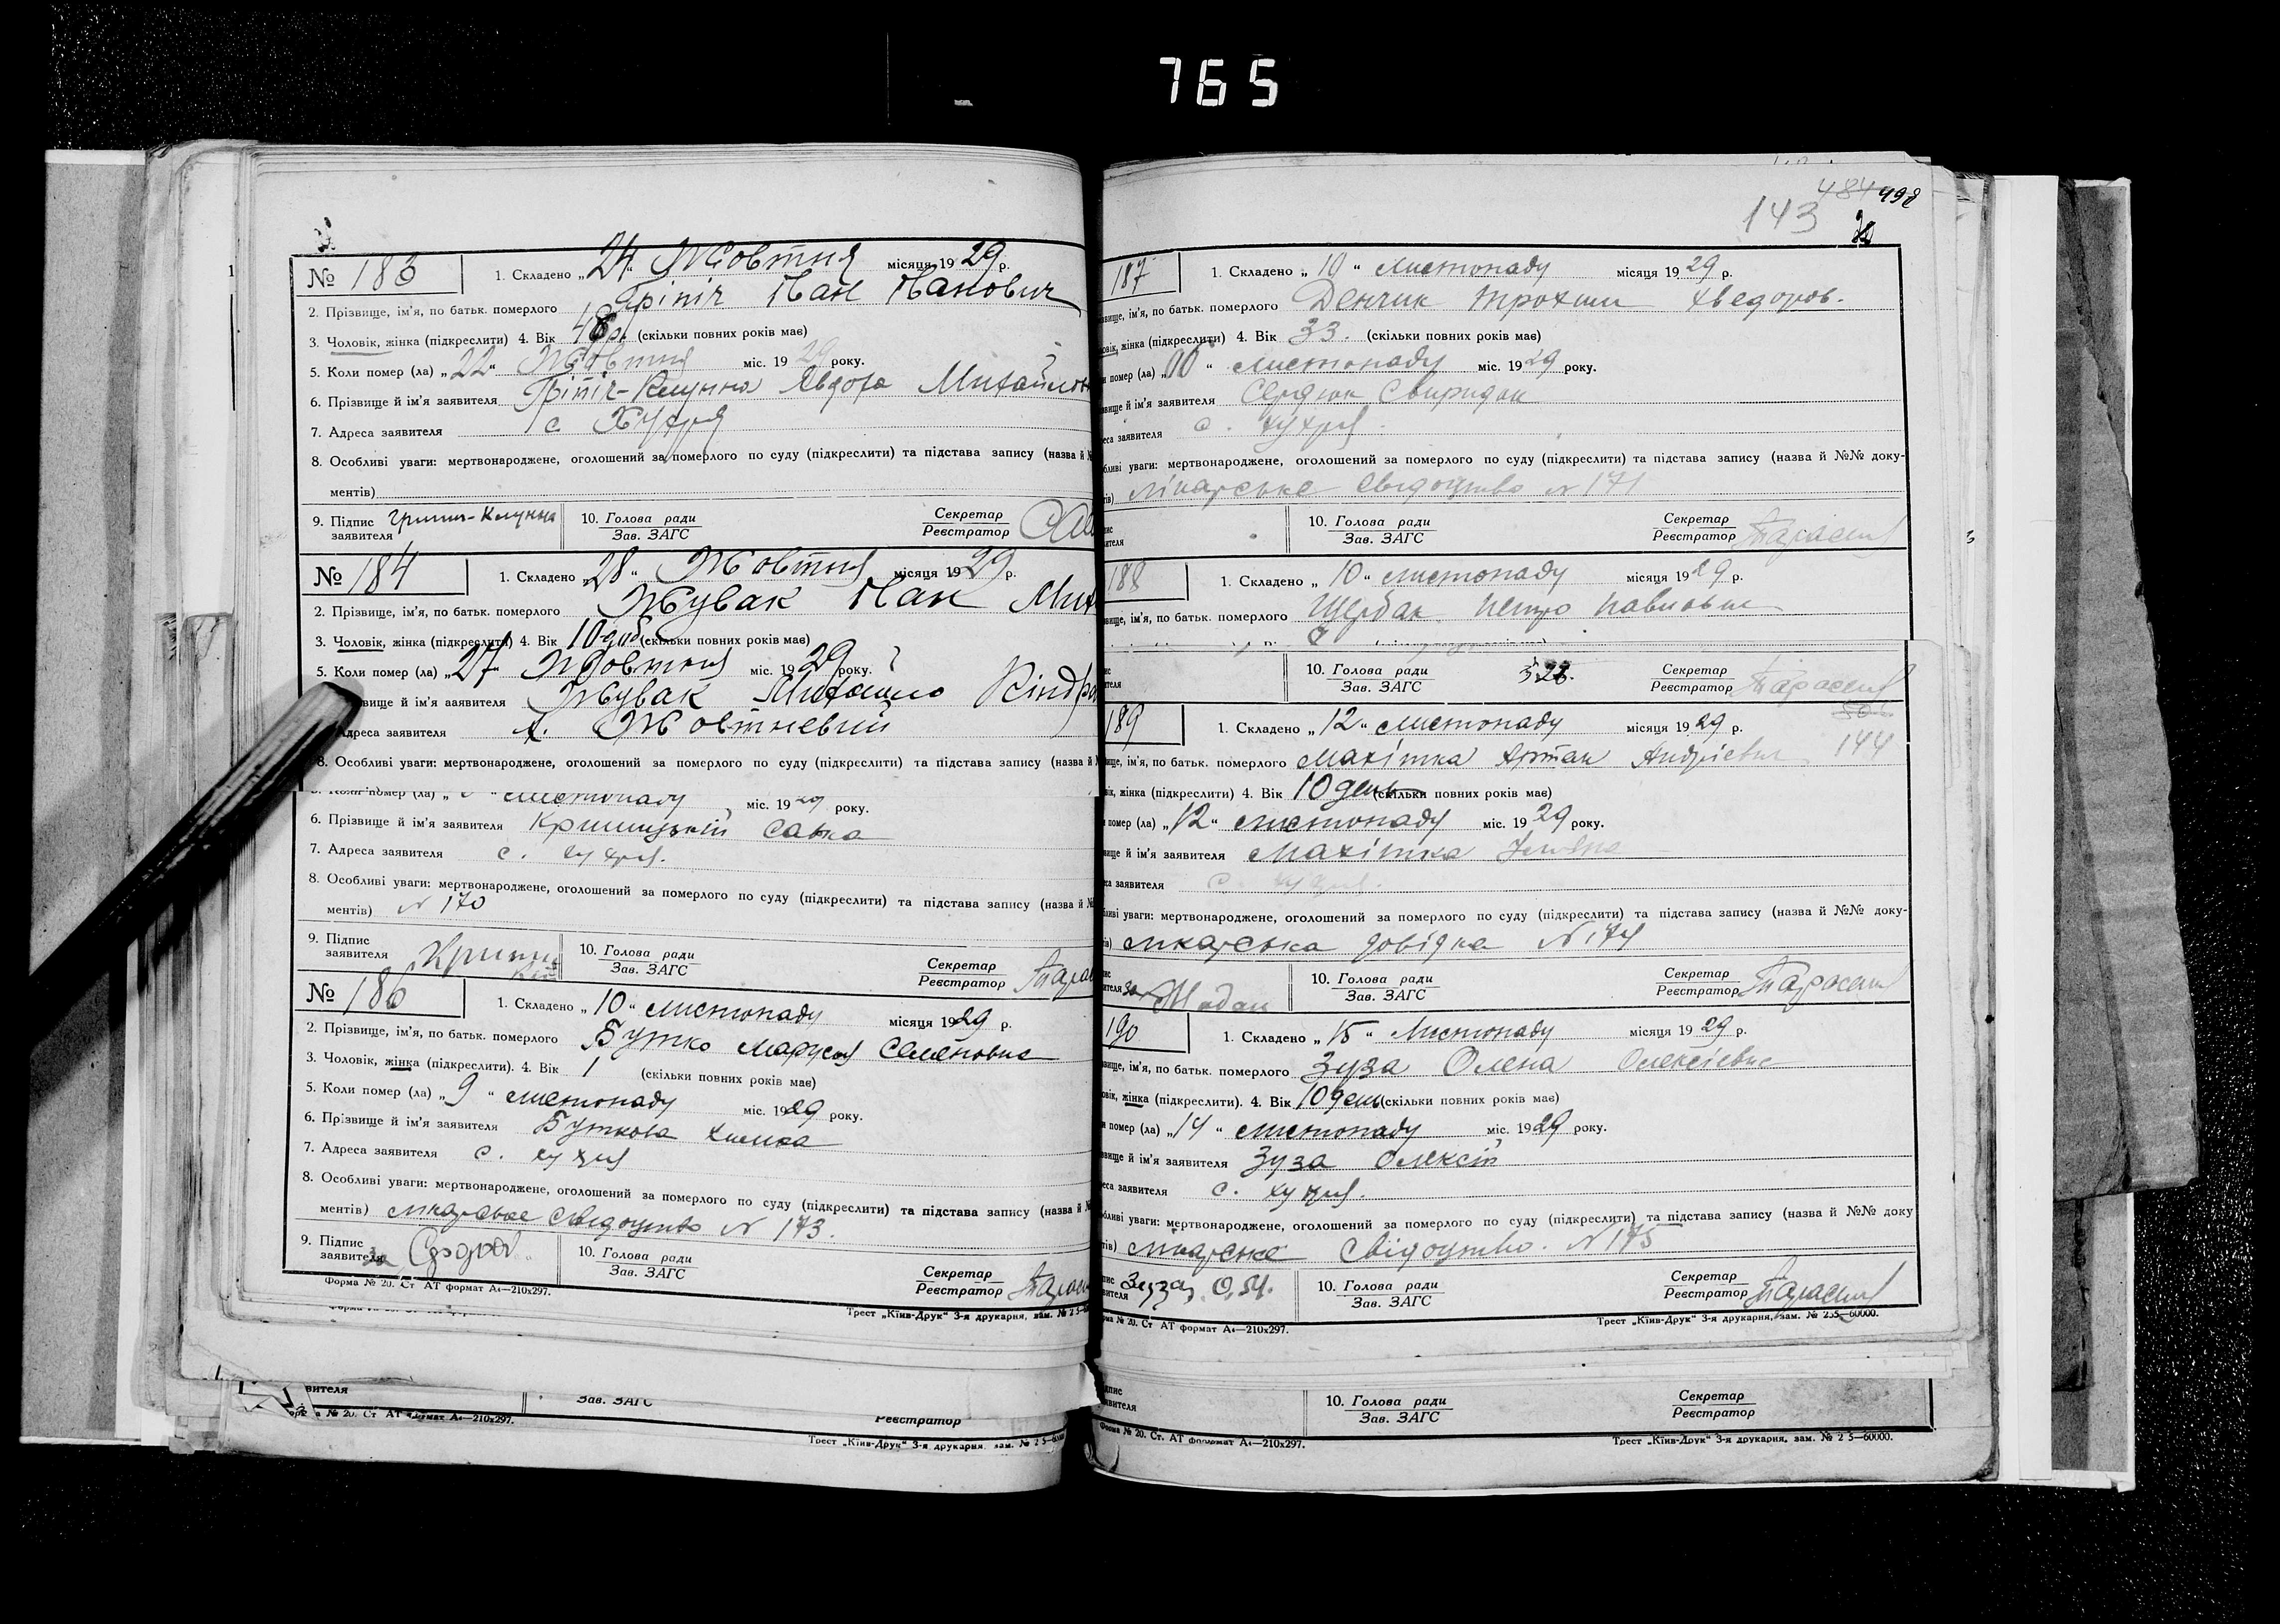 765
№ 183 1. Складено „24“ Жовтня місяця 1929 р.
2. Прізвище, ім'я, по батьк. померлого Гріпіч Пан Панович
3. Чоловік, жінка (підкреслити) 4. Вік 48 р. (скільки повних років має)
5. Коли помер (ла) „22“ Жовтня міс. 1929 року.
6. Прізвище й ім'я заявителя Гріпіч-Клунна Явдоха Михайлон
7. Адреса заявителя с Хухря
8. Особливі уваги: мертвонароджене, оголошений за померлого по суду (підкреслити) та підстава запису (назва й №
ментів)
9. Підпис заявителя 10. Голова ради Зав. ЗАГС Секретар Реєстратор
№ 184 1. Складено „28“ Жовтня місяця 1929 р.
2. Прізвище, ім'я, по батьк. померлого Жувак Пан Мих
3. Чоловік, жінка (підкреслити) 4. Вік 10 діб (скільки повних років має)
5. Коли помер (ла) „27“ Жовтня міс. 1929 року.
вище й ім'я заявителя Жувак Михайло Кіндра
Адреса заявителя х. Жовтневий
8. Особливі уваги: мертвонароджене, оголошений за померлого по суду (підкреслити) та підстава запису (назва й №
5. Коли помер (ла) „ “ листопаду міс. 1929 року.
6. Прізвище й ім'я заявителя Кришицький Савка
7. Адреса заявителя с. Хухря.
8. Особливі уваги: мертвонароджене, оголошений за померлого по суду (підкреслити) та підстава запису (назва й №
ментів) № 170
9. Підпис заявителя 10. Голова ради Зав. ЗАГС Секретар Реєстратор
№ 186 1. Складено „10“ листопаду місяця 1929 р.
2. Прізвище, ім'я, по батьк. померлого Бутко Маруся Семеновна
3. Чоловік, жінка (підкреслити). 4. Вік 1 (скільки повних років має)
5. Коли помер (ла) „9“ листопаду міс. 1929 року.
6. Прізвище й ім'я заявителя Буткова Химка
7. Адреса заявителя с. Хухря
8. Особливі уваги: мертвонароджене, оголошений за померлого по суду (підкреслити) та підстава запису (назва й №
ментів) лікарське свідоцтво № 173.
9. Підпис заявителя за 10. Голова ради Зав. ЗАГС Секретар Реєстратор
Форма № 20. Ст АТ формат А4—210х297.
Трест „Київ-Друк“ 3-я друкарня, зам. № 2
вителя Зав. ЗАГС Реєстратор
№ 20. Ст АТ формат А4—210х297.
Трест „Київ-Друк“ 3-я друкарня, зам. № 2 5—
484 498
143
187 1. Складено „10“ листопаду місяця 1929 р.
вище, ім'я, по батьк. померлого Денчик Трохим Хведоров.
овік, жінка (підкреслити) 4. Вік 33. (скільки повних років має)
и помер (ла) „10“ листопаду міс. 1929 року.
звище й ім'я заявителя Сердюк Свиридон
еса заявителя с. Хухря.
бливі уваги: мертвонароджене, оголошений за померлого по суду (підкреслити) та підстава запису (назва й №№ доку-
тів) лікарське свідоцтво № 171
пис вителя 10. Голова ради Зав. ЗАГС Секретар Реєстратор
188 1. Складено „10“ листопаду місяця 1929 р.
вище, ім'я, по батьк. померлого Щербак Петро Павлович
7
пис вителя 10. Голова ради Зав. ЗАГС Секретар Реєстратор
189 1. Складено „12“ листопаду місяця 1929 р.
вище, ім'я, по батьк. померлого Махітка Артан Андрієвич 144
ік, жінка (підкреслити) 4. Вік 10 день (скільки повних років має)
и помер (ла) „12“ листопаду міс. 1929 року.
вище й ім'я заявителя Махітка
еса заявителя с. Хухря.
бливі уваги: мертвонароджене, оголошений за померлого по суду (підкреслити) та підстава запису (назва й №№ доку-
ів) лікарська довідка № 174
пис вителя за Жадан 10. Голова ради Зав. ЗАГС Секретар Реєстратор
190 1. Складено „15“ Листопаду місяця 1929 р.
вище, ім'я, по батьк. померлого Зуза Олена Олексієвна
овік, жінка (підкреслити). 4. Вік 10 день (скільки повних років має)
и помер (ла) „14“ листопаду міс. 1929 року.
звище й ім'я заявителя Зуза Олексій
еса заявителя с. Хухря.
бливі уваги: мертвонароджене, оголошений за померлого по суду (підкреслити) та підстава запису (назва й №№ доку
тів) лікарське свідоцтво. № 175
пис вителя Зуза, О, 10. Голова ради Зав. ЗАГС Секретар Реєстратор
рма № 20. Ст АТ формат А4—210х297.
Трест „Київ-Друк“ 3-я друкарня, зам. № 235—60000.
дпис явителя 10. Голова ради Зав. ЗАГС Секретар Реєстратор
Форма № 20. Ст. АТ формат А4—210х297.
Трест „Київ-Друк“ 3-я друкарня, зам. № 2 5—60000.